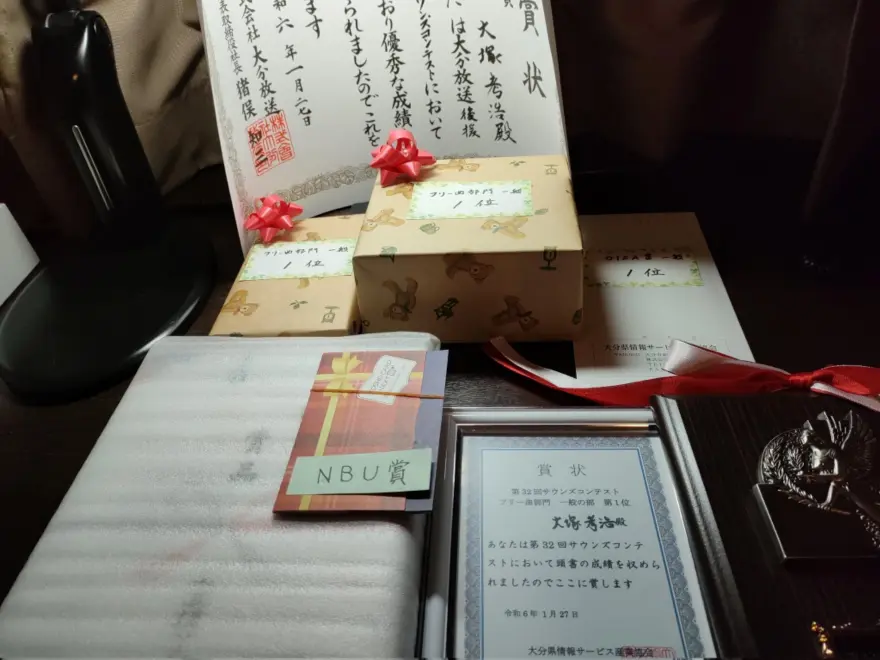 賞状
大塚孝浩殿
は大分放送後援
コンテストにおいて
おり優秀な成績
られましたのでこれを
ます
和六年一月二七日
式会社大分放送
長取締役社長 猪俣
フリー曲部門 一般
1位
フリー曲部門 一般
1位
1位
大分県情報サービ
賞品
NBU賞
賞状
第32回サウンズコンテスト
フリー曲部門 一般の部 第1位
大塚孝浩殿
あなたは第32回サウンズコンテ
ストにおいて頭書の成績を収めら
れましたのでここに賞します
令和6年1月27日
大分県情報サービス産業協会